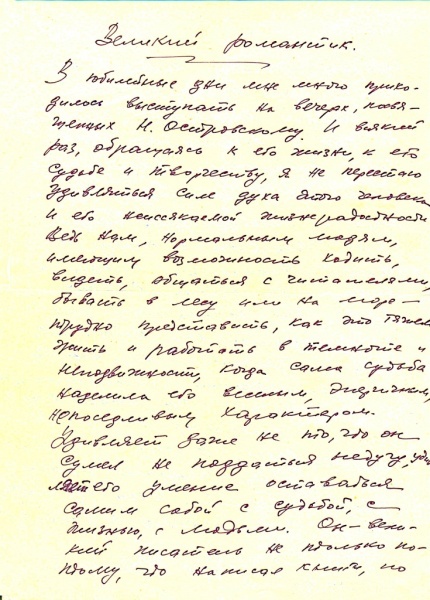 Великий романтик.
В юбилейные дни мне много прихо-
дилось выступать на вечерах, посвя-
щенных Н. Островскому. И всякий
раз, обращаясь к его жизни, к его
судьбе и творчеству, я не перестаю
удивляться силе духа этого человека
и его неиссякаемой жизнерадостности
Ведь нам, нормальным людям,
имеющим возможность ходить,
видеть, общаться с читателями,
бывать в лесу или на море –
трудно представить, как это тяжело
жить и работать в темноте и
неподвижности, когда сама судьба
наделила его веселым, энергичным,
непоседливым характером.
Удивляет даже не то, что он
сумел не поддаться недугу, удив
ляет его умение оставаться
самим собой с судьбой, с
жизнью, с людьми. Он – вели-
кий писатель не только по-
тому, что написал книги, но